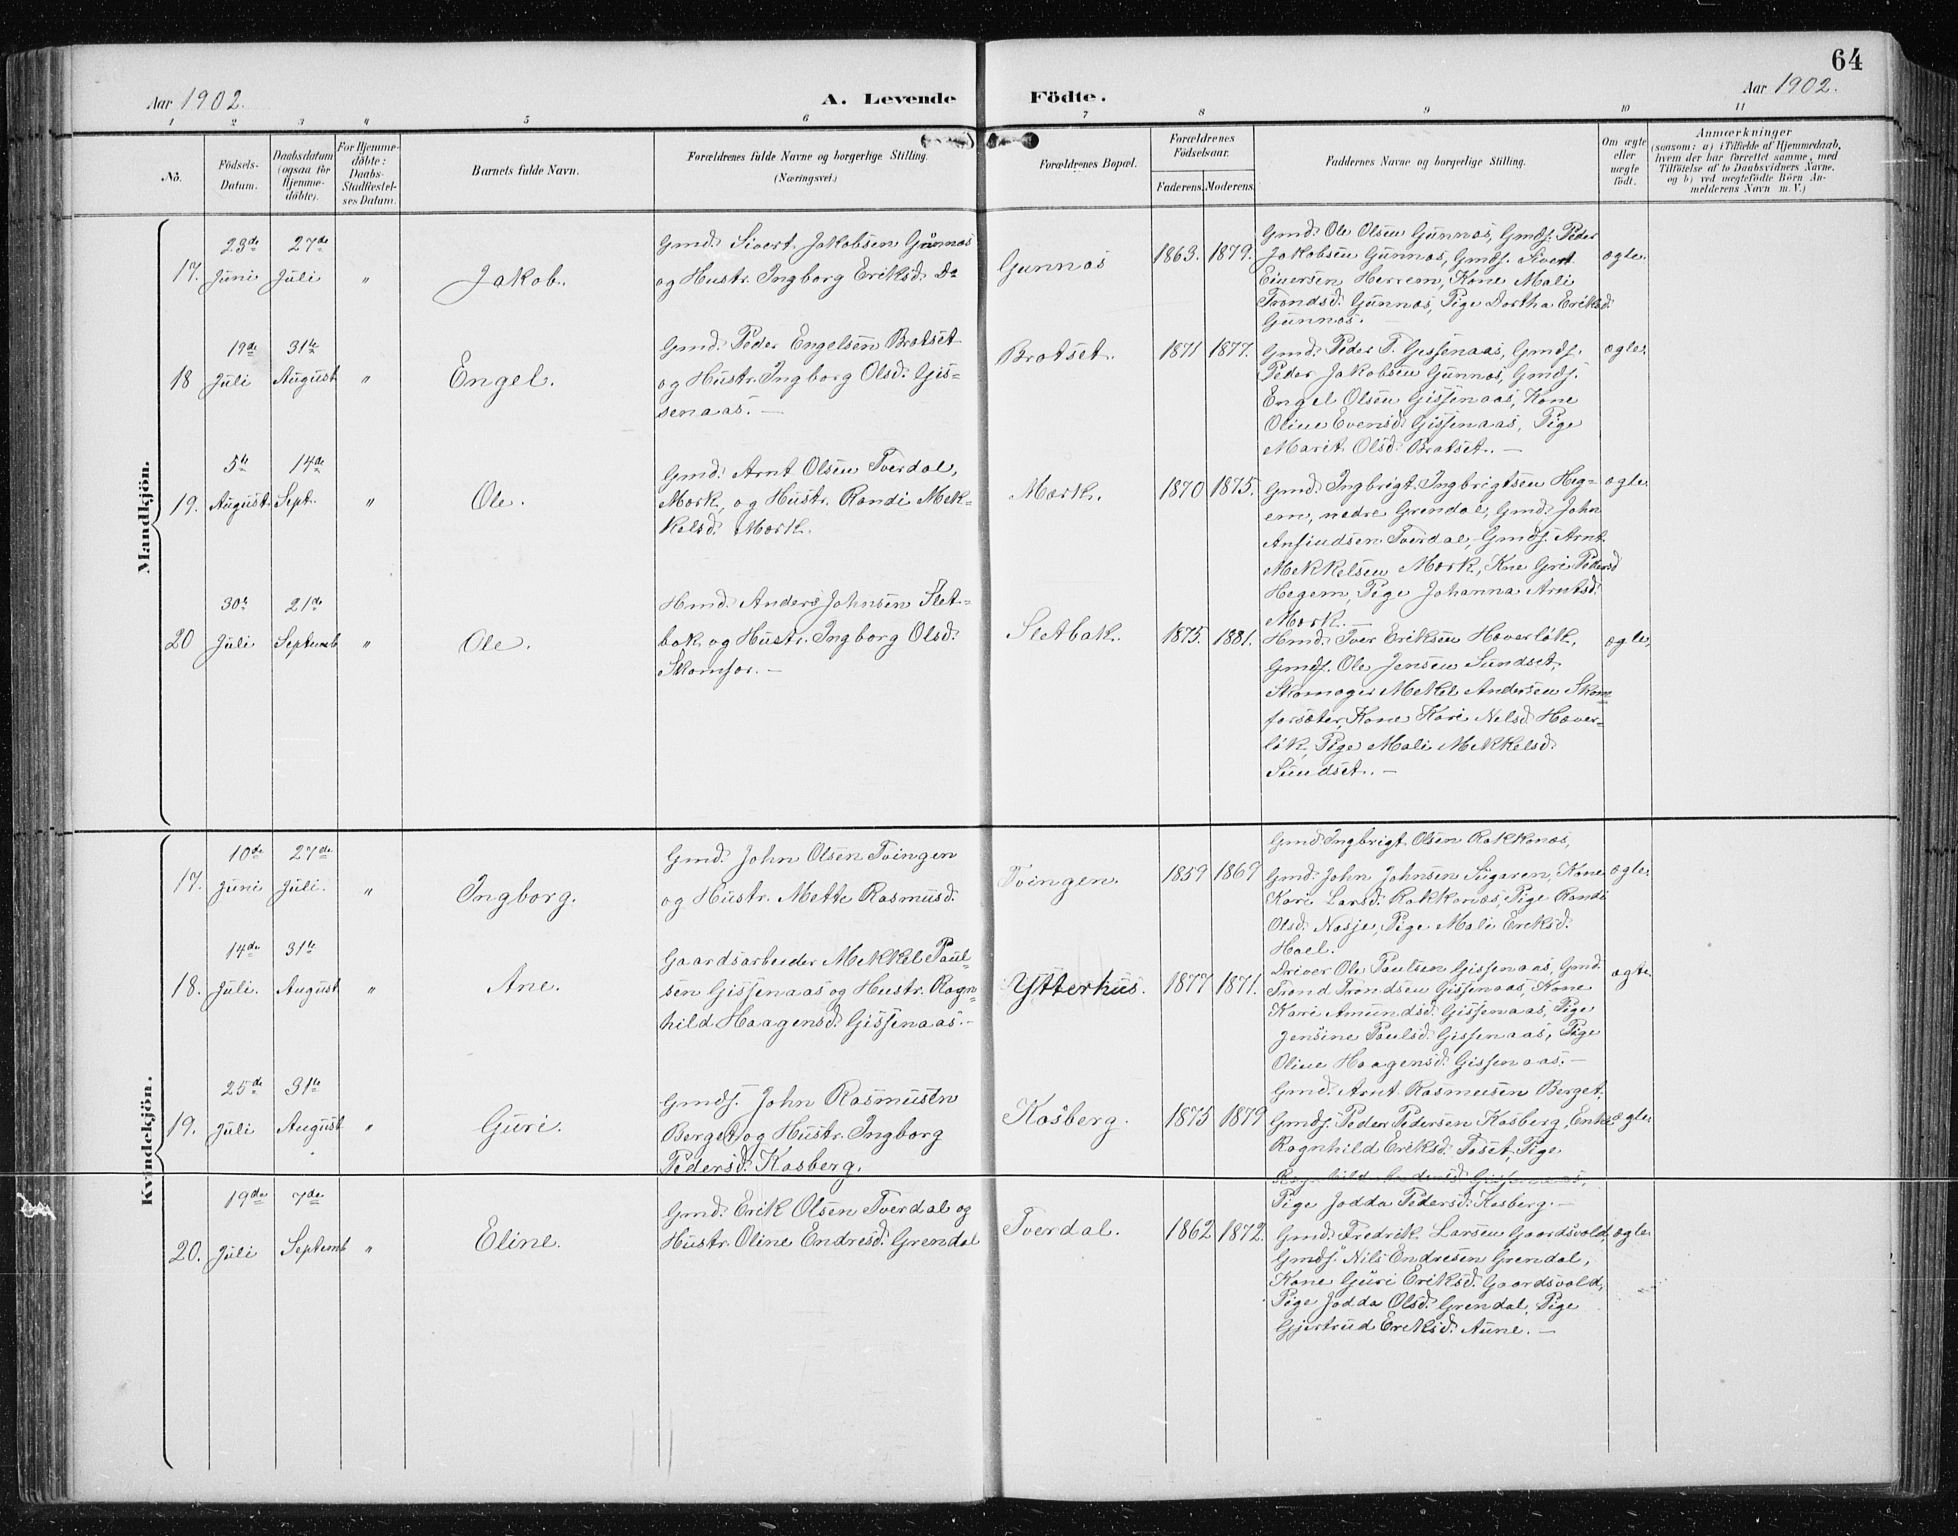 64
Aar 1902.
A. Levende Födte.
Aar 1902.
1 2 3 4 5 6 7 8 9 10 11
No.
Födsels-
Datum.
Daabsdatum
(ogsaa for
Hjemme-
döbte).
For Hjemme-
döbte:
Daabs-
Stadfæstel-
ses Datum.
Barnets fulde Navn.
Forældrenes fulde Navne og borgerlige Stilling.
(Næringsvei.)
Forældrenes Bopæl.
Forældrenes
Födselsaar.
Faderens. Moderens.
Faddernes Navne og borgerlige Stilling.
Om ægte
eller
uægte
födt.
Anmærkninger
(saasom: a) i Tilfælde af Hjemmedaab,
hvem der har forrettet samme, med
Tilföielse af to Daabsvidners Navne,
og b) ved uægtefödte Börn An-
melderens Navn m. V.)
Mandkjön.
17. 23de Juni
27de Juli
"
Jakob.
Gmd. Sivert Jakobsen Gunnæs
og Hustr. Ingborg Eriksd. Do
Gunnæs
1863. 1879.
Gmd. Ole Olsen Gunnæs, Gmds. Peder
Jakobsen Gunnæs, Gmds. Sivert
Einersen Herrem, Kone Mali
Trondsd. Gunnæs, Pige Dortha Eriksd.
Gunnæs.
ægte.
18 19de Juli
31te August
"
Engel.
Gmd. Peder Engelsen Bratset
og Hustr. Ingborg Olsd. Gis-
senaas. —
Bratset.
1871 1877.
Gmd. Peder T. Gissenaas, Gmds.
Peder Jakobsen Gunnæs, Gmds.
Engel Olsen Gissenaas, Kone
Oline Evensd. Gissenaas, Pige
Marit Olsd. Bratset. —
ægte.
19. 5te August.
14de Sept.
"
Ole.
Gmd. Arnt Olsen Tverdal,
Mærk, og Hustr. Randi Mek-
kelsd. Mærk.
Mærk.
1870 1875.
Gmd. Ingbrigt Ingbrigtsen Heg-
em, nedre Grendal, Gmd. John
Anfindsen Tverdal, Gmds. Arnt
Mekkelsen Mærk, Kne Gri Pedersd
Hegem, Pige Johanna Arntsd.
Mærk. —
ægte.
20 30te Juli
21de Septemb
"
Ole.
Hmd. Anders Johnsen Slet-
bak og Hustr. Ingborg Olsd.
Skomfor. —
Sletbak.
1875. 1881.
Hmd. Iver Eriksen Haverløk,
Gmds. Ole Jensen Sundset,
Skomager Mekkel Andersen Skom-
forsæter, Kone Kari Nelsd. Haver-
løk, Pige Mali Mekkelsd.
Sundset. —
ægte,
Kvindekjön.
17. 10de Juni
27de Juli.
"
Ingborg.
Gmd. John Olsen Tvingen
og Hustr. Mette Rasmusd.
Tvingen.
1859 1869
Gmd. Ingbrigt Olsen Rakknæs,
Gmd. John Johnsen Sugaren, Kone
Kari Larsd. Rakkanæs, Pige Randi
Olsd. Nasje, Pige Mali Eriksd.
Hoel.
ægte.
18. 14de Juli.
31te August
"
Ane.
Gaardsarbeider Mekkel Paul-
sen Gissenaas og Hustr. Ragn-
hild Haagensd. Gissenaas. —
Ytterhus.
1877 1871.
Driver Ole Paulsen Gissenaas, Gmd.
Trond Trondsen Gissenaas, Kone
Kari Amundsd. Gissenaas, Pige
Jensine Paulsd. Gissenaas, Pige
Oline Haagensd. Gissenaas. —
ægte.
19. 25de Juli
31te August
"
Guri.
Gmds. John Rasmusen
Berget og Hustr. Ingborg
Pedersd. Kasberg.
Kasberg.
1875 1879
Gmd. Arnt Rasmusen Berget,
Gmds. Peder Pedersen Kasberg, Enke
Ragnhild Eriksd. Toset, Pige
Gissenaas,
Pige Jodda Pedersd. Kasberg. —
ægte
20. 19de Juli
7de Septemb
"
Eline.
Gmd. Erik Olsen Tverdal og
Hustr. Oline Endresd. Grendal
Tverdal.
1862 1872.
Gmd. Fredrik Larsen Gaardsvold,
Gmds. Nils Endresen Grendal,
Kone Guri Eriksd. Gaardsvold,
Pige Jodda Olsd. Grendal, Pige
Gjertrud Eriksd. Aune. —
ægte